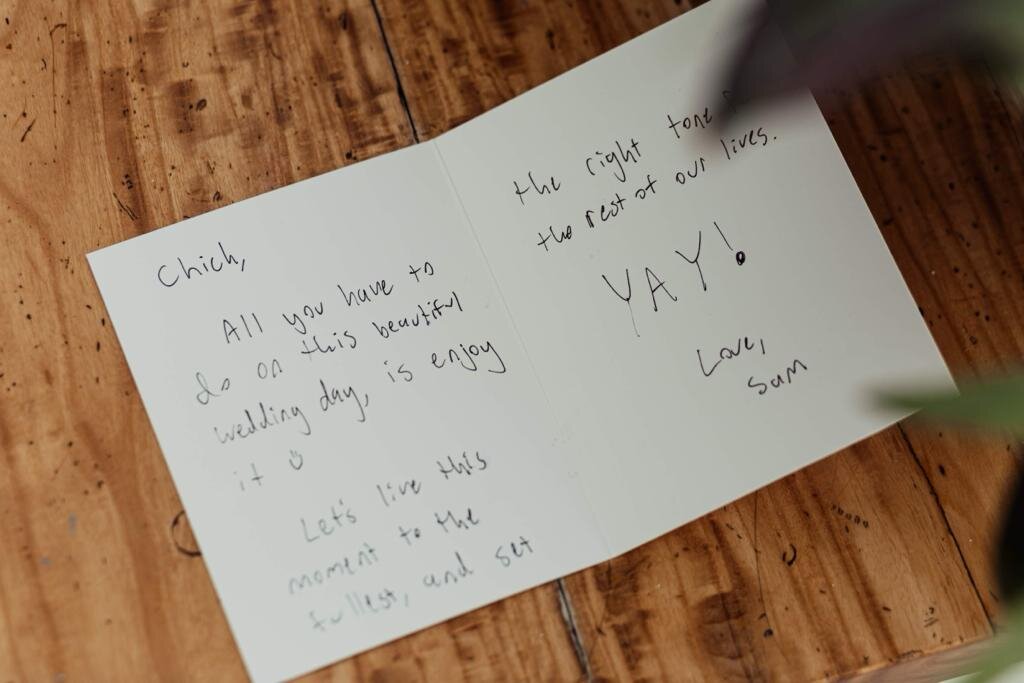 Chich,
All you have to
do on this beautiful
wedding day, is enjoy
it
Let's live this
moment to the
fullest, and set
the right tone
the rest of our lives.
YAY!
Love,
Sam